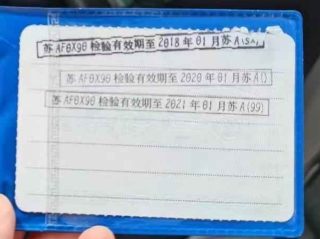 苏AF0X90检验有效期至2018年01月苏A
苏AF0X90检验有效期至2020年01月苏A()
苏AF0X90检验有效期至2021年01月苏A(99)